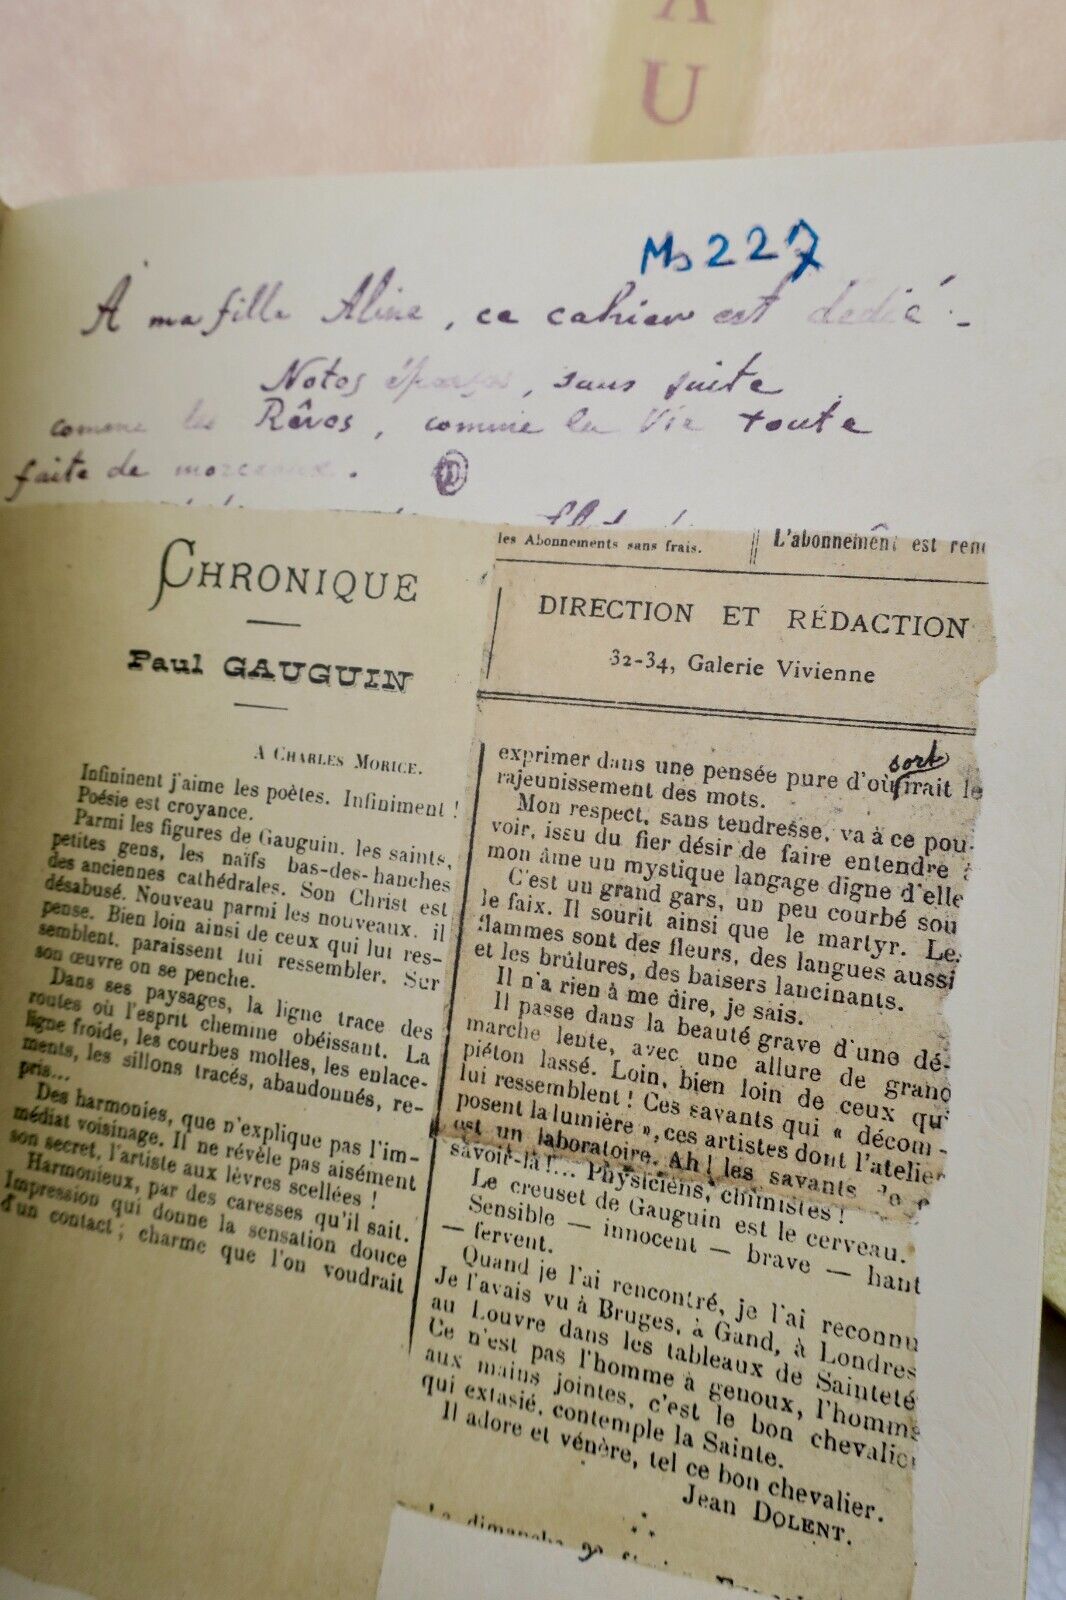 X
U
Ms 227
A ma fille Aline, ce cahier est dédié.
Notes éparses, sans suite
comme les Rêves, comme la Vie toute
faite de morceaux.
CHRONIQUE
Paul GAUGUIN
A CHARLES MORICE.
Infininent j'aime les poètes. Infiniment !
Poésie est croyance.
Parmi les figures de Gauguin, les saints,
petites gens, les naïfs bas-des-hanches
des anciennes cathédrales. Son Christ est
désabusé. Nouveau parmi les nouveaux, il
pense. Bien loin ainsi de ceux qui lui res-
semblent, paraissent lui ressembler. Sur
son œuvre on se penche.
Dans ses paysages, la ligne trace des
routes où l'esprit chemine obéissant. La
ligne froide, les courbes molles, les enlace-
ments, les sillons tracés, abandonnés, re-
pris...
Des harmonies, que n'explique pas l'im-
médiat voisinage. Il ne révèle pas aisément
son secret, l'artiste aux lèvres scellées !
Harmonieux, par des caresses qu'il sait.
Impression qui donne la sensation douce
d'un contact ; charme que l'on voudrait
les Abonnements sans frais.
L'abonnement est ren
DIRECTION ET RÉDACTION
32-34, Galerie Vivienne
sort
exprimer dans une pensée pure d'où irait le
rajeunissement des mots.
Mon respect, sans tendresse, va à ce pou-
voir, issu du fier désir de faire entendre à
mon âme un mystique langage digne d'elle
C'est un grand gars, un peu courbé sou
le faix. Il sourit ainsi que le martyr. Le
flammes sont des fleurs, des langues aussi
et les brûlures, des baisers lancinants.
Il n'a rien à me dire, je sais.
Il passe dans la beauté grave d'une dé-
marche lente, avec une allure de grand
piéton lassé. Loin, bien loin de ceux qui
lui ressemblent ! Ces savants qui « décom-
posent la lumière », ces artistes dont l'atelier
est un laboratoire. Ah ! les savants
savoir-là !... Physiciens, chimistes !
Le creuset de Gauguin est le cerveau.
Sensible — innocent — brave — haut
— fervent.
Quand je l'ai rencontré, je l'ai reconnu
Je l'avais vu à Bruges, à Gand, à Londres
au Louvre dans les tableaux de Sainteté
Ce n'est pas l'homme à genoux, l'homme
aux mains jointes, c'est le bon chevalier
qui extasié, contemple la Sainte.
Il adore et vénère, tel ce bon chevalier.
Jean DOLENT.
Le dimanche